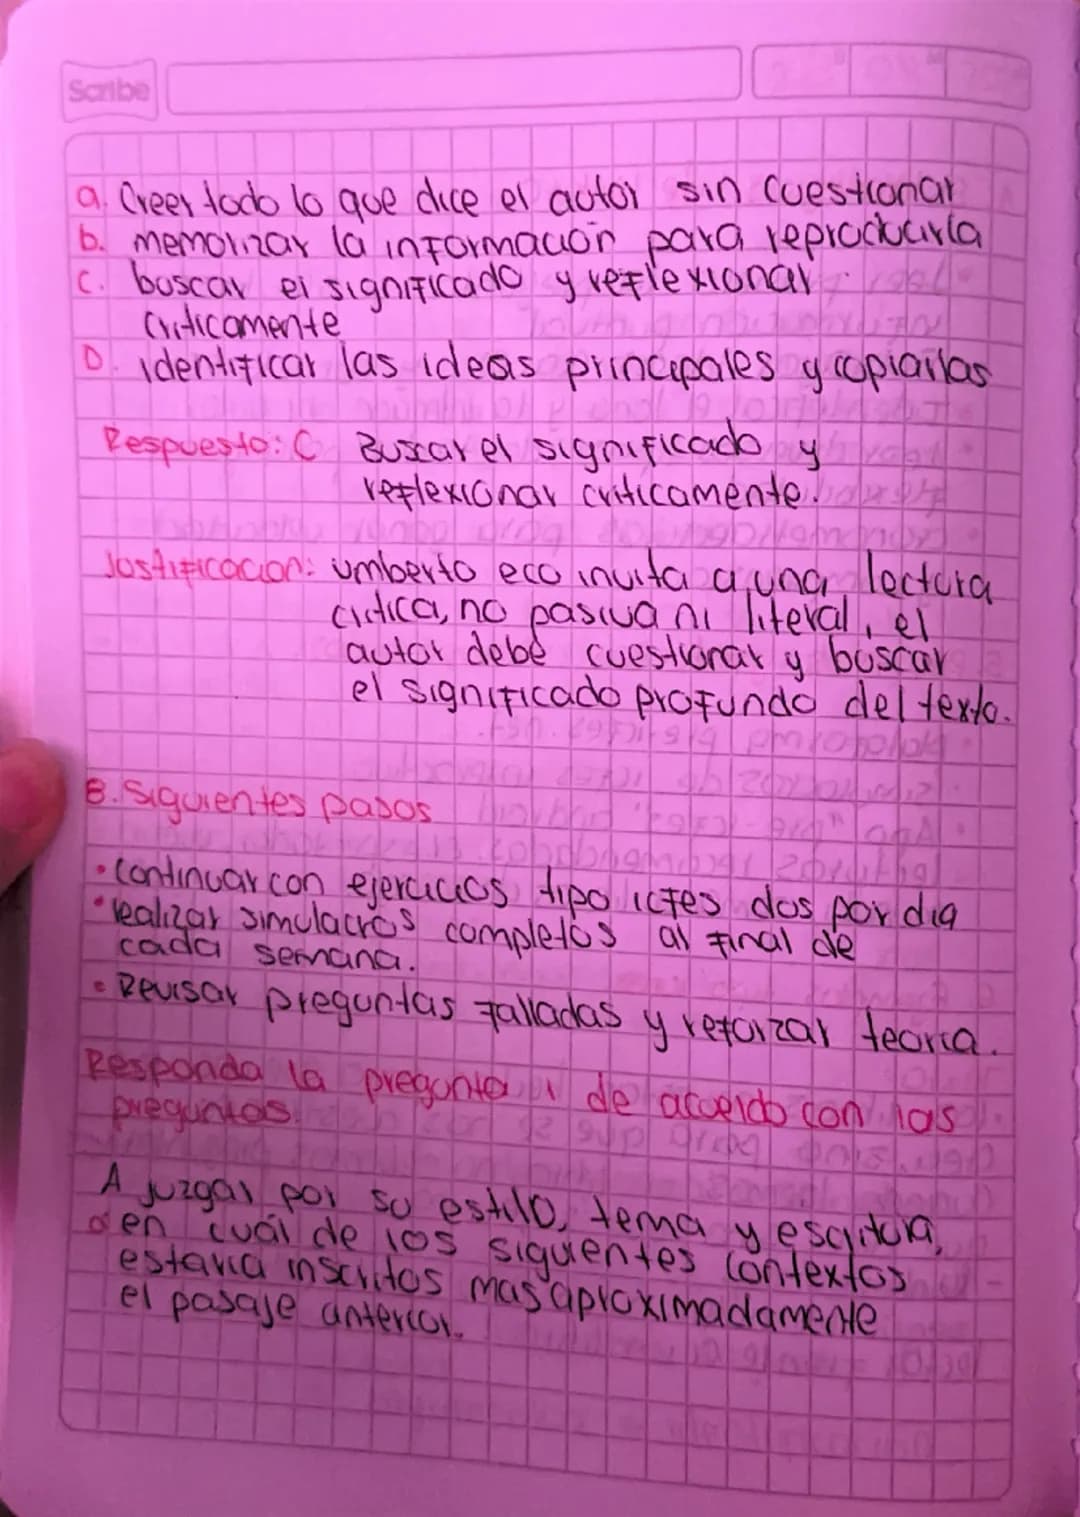 Scribe
a. Creer todo lo que dice el autor sin cuestionar
b. memorizar la información para reproducirla
c. buscar el significado y reflexionar
criticamente
D. identificar las ideas principales y copiarlas
Respuesta: C Buscar el significado y
reflexionar criticamente.
Justificacion: umberto eco invita a una lectura
critica, no pasiva ni literal, el
autor debe cuestionar y buscar
el significado profundo del texto.
8. Siguientes pasos
• continuar con ejercicios tipo icfes dos por dia
• realizar simulacros completos al final de
cada semana.
• Revisar preguntas falladas y reforzar teoria.
Responda la pregunta 1 de acuerdo con las
preguntas.
A juzgar por su estilo, tema y escritura,
¿en cuál de los siguientes contextos
estaria inscritos mas aproximadamente
el pasaje anterior.